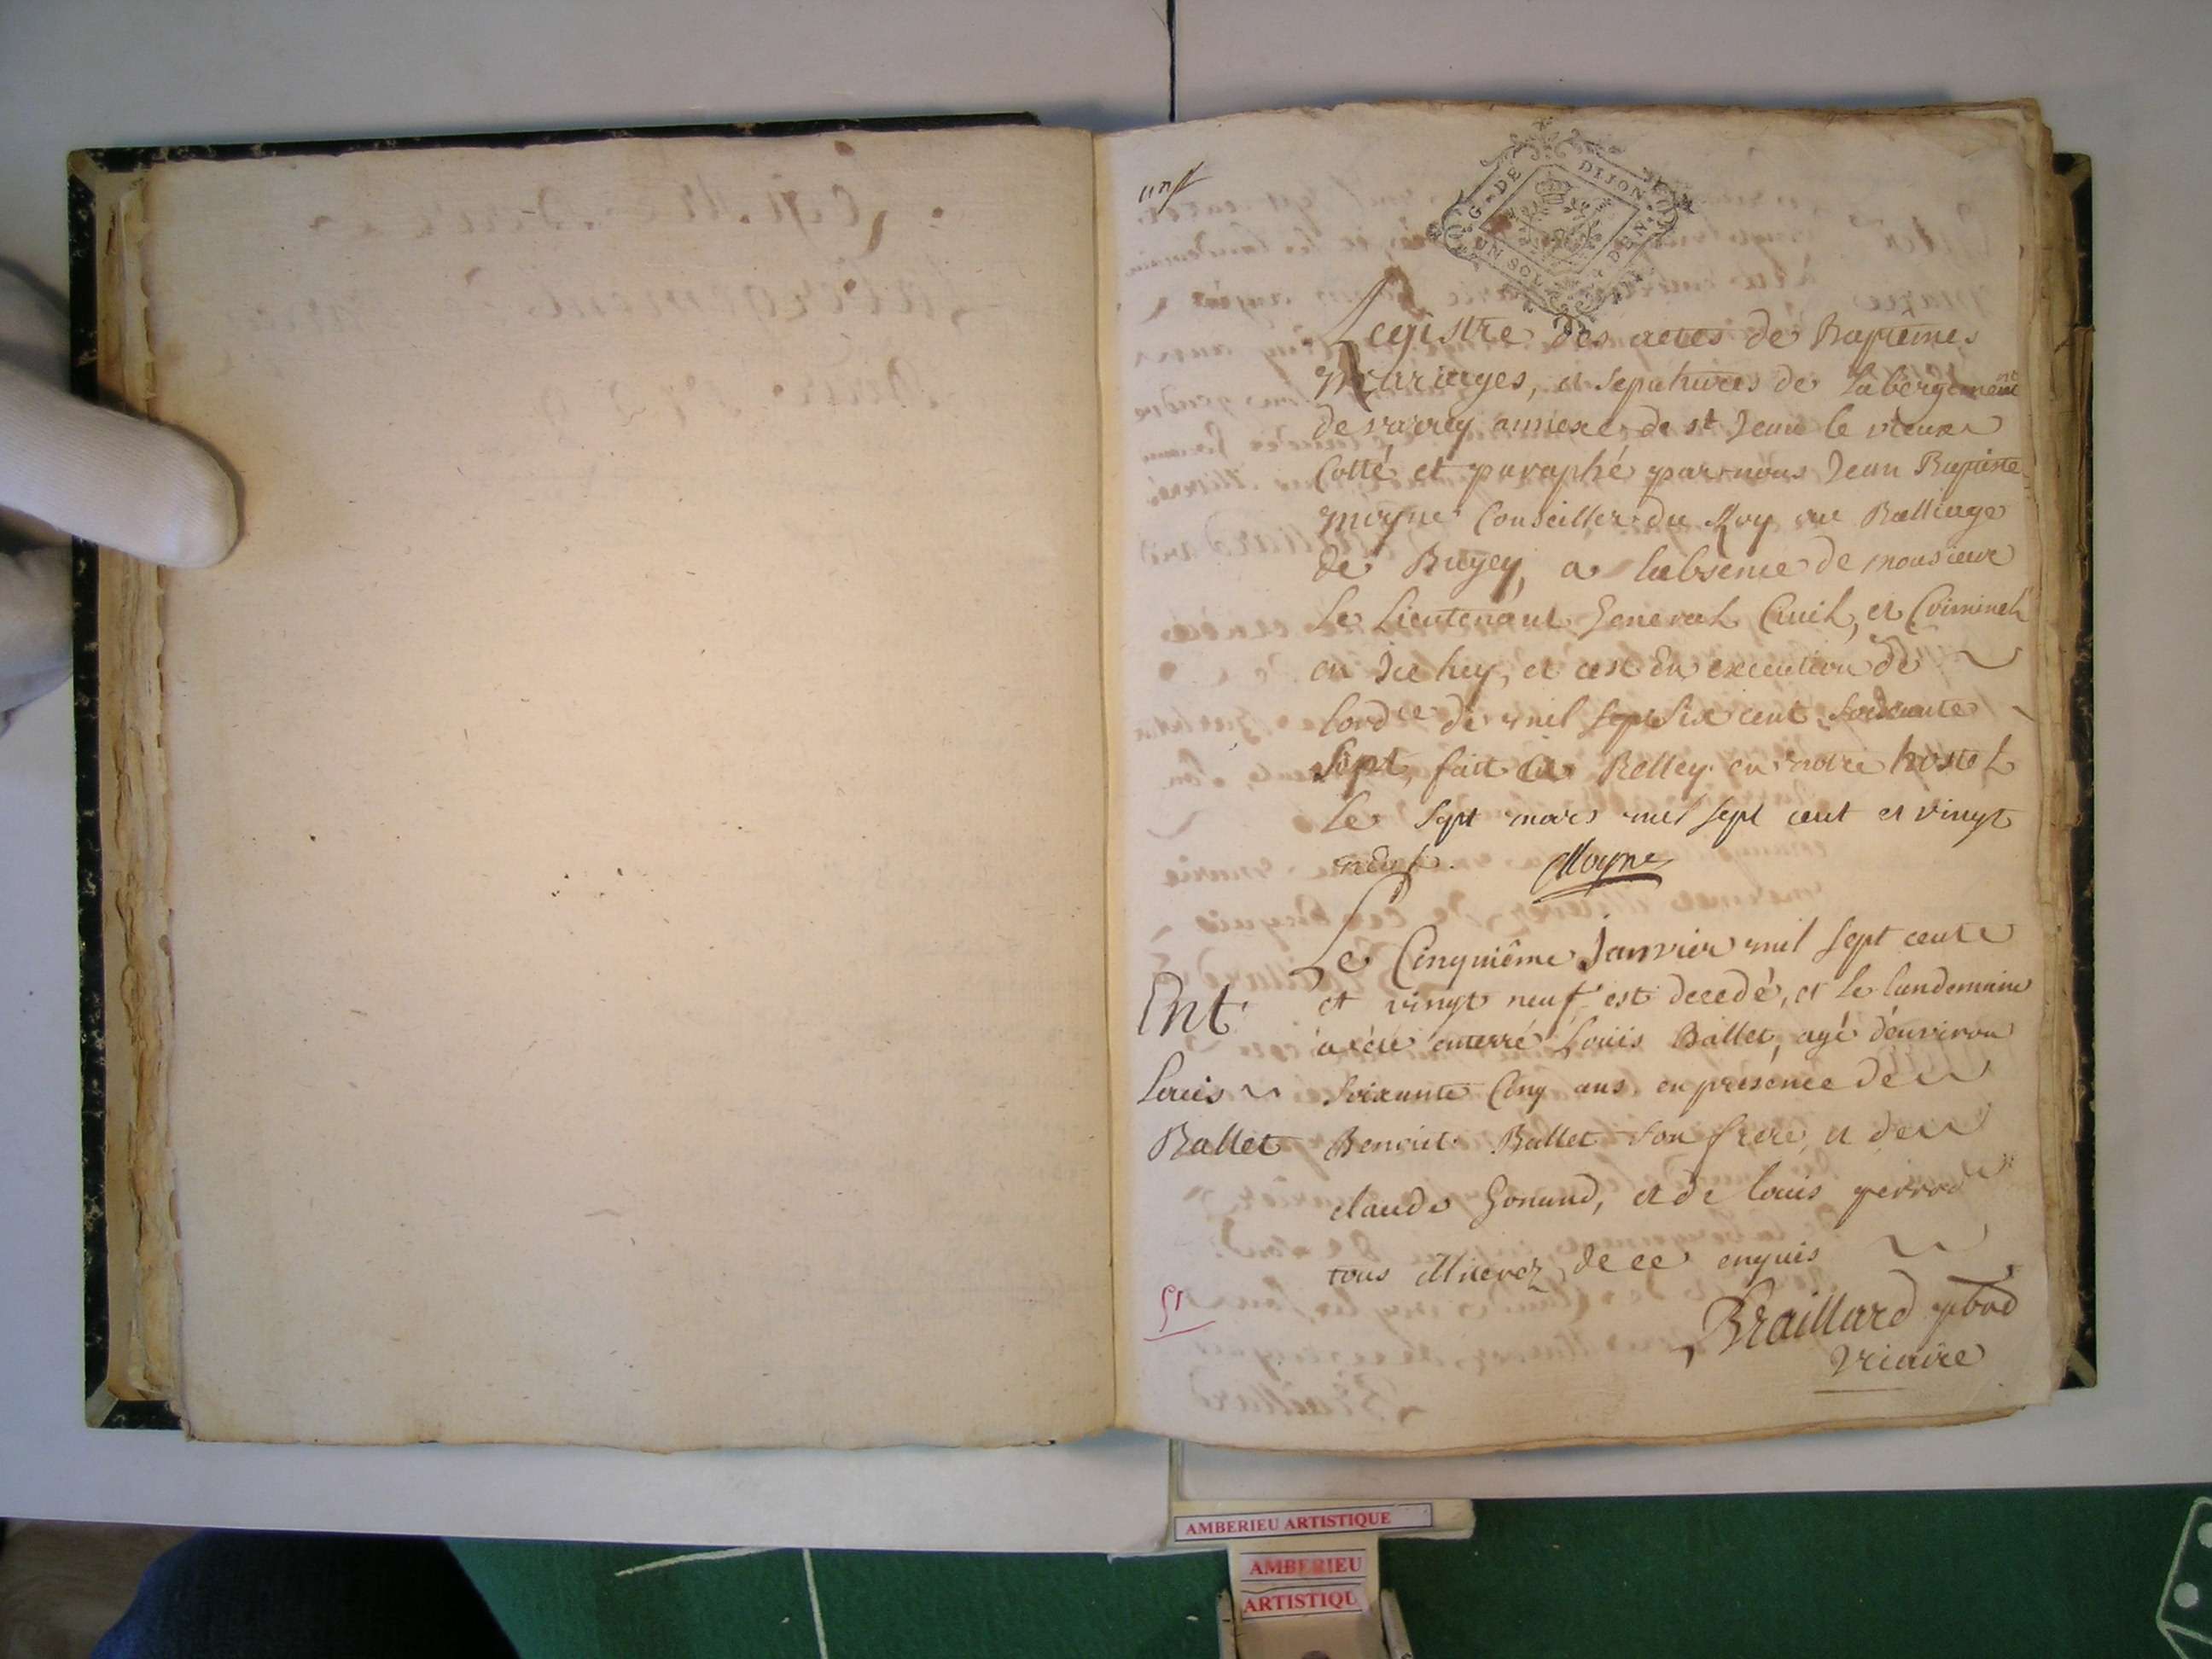 G. DE DIJON
UN SOL DEN.
Registre des actes de Baptêmes
Mariages, et sepultures de Labergement
de varey annexe de st Jean le vieux
Cotté et paraphé par nous Jean Baptiste
moyne Conseiller du Roy au Balliage
de Bugey, a labsence de monsieur
le Lieutenant General Civil, et Criminel
en Icelluy, et cest En execution de
lordce de mil sept six cent soixante
sept, fait a Belley en notre hostel
le sept mars mil sept cent et vingt
neuf. Moyne
Le Cinquiême Janvier mil sept cent
et vingt neuf est decedé, et le landemain
à été enterré Loüis Ballet, agé d'environ
soixante Cinq ans en presence de
Benoit Ballet son frere, et de
claude Gonand, et de loüis perrod
tous illiterez, de ce enquis
Ent.
Louis
Ballet
Braillard pbre
vicaire
AMBERIEU ARTISTIQUE
AMBERIEU
ARTISTIQU